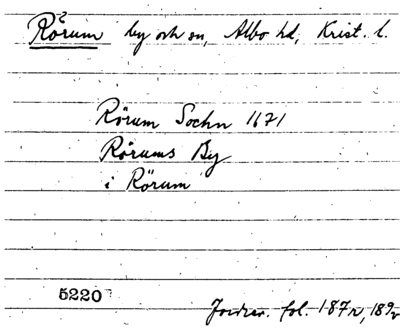 Rörum by och sn, Albo hd, Krist. l.
Rörum Sochn 1671
Rörums By
i Rörum
5220
Jordrev. fol. 187v, 189v